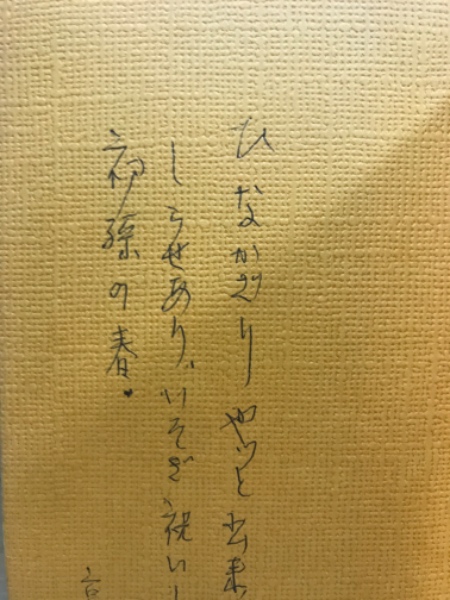 ひなかざりやっと出来
しらせあり、いそぎ祝い
初孫の春